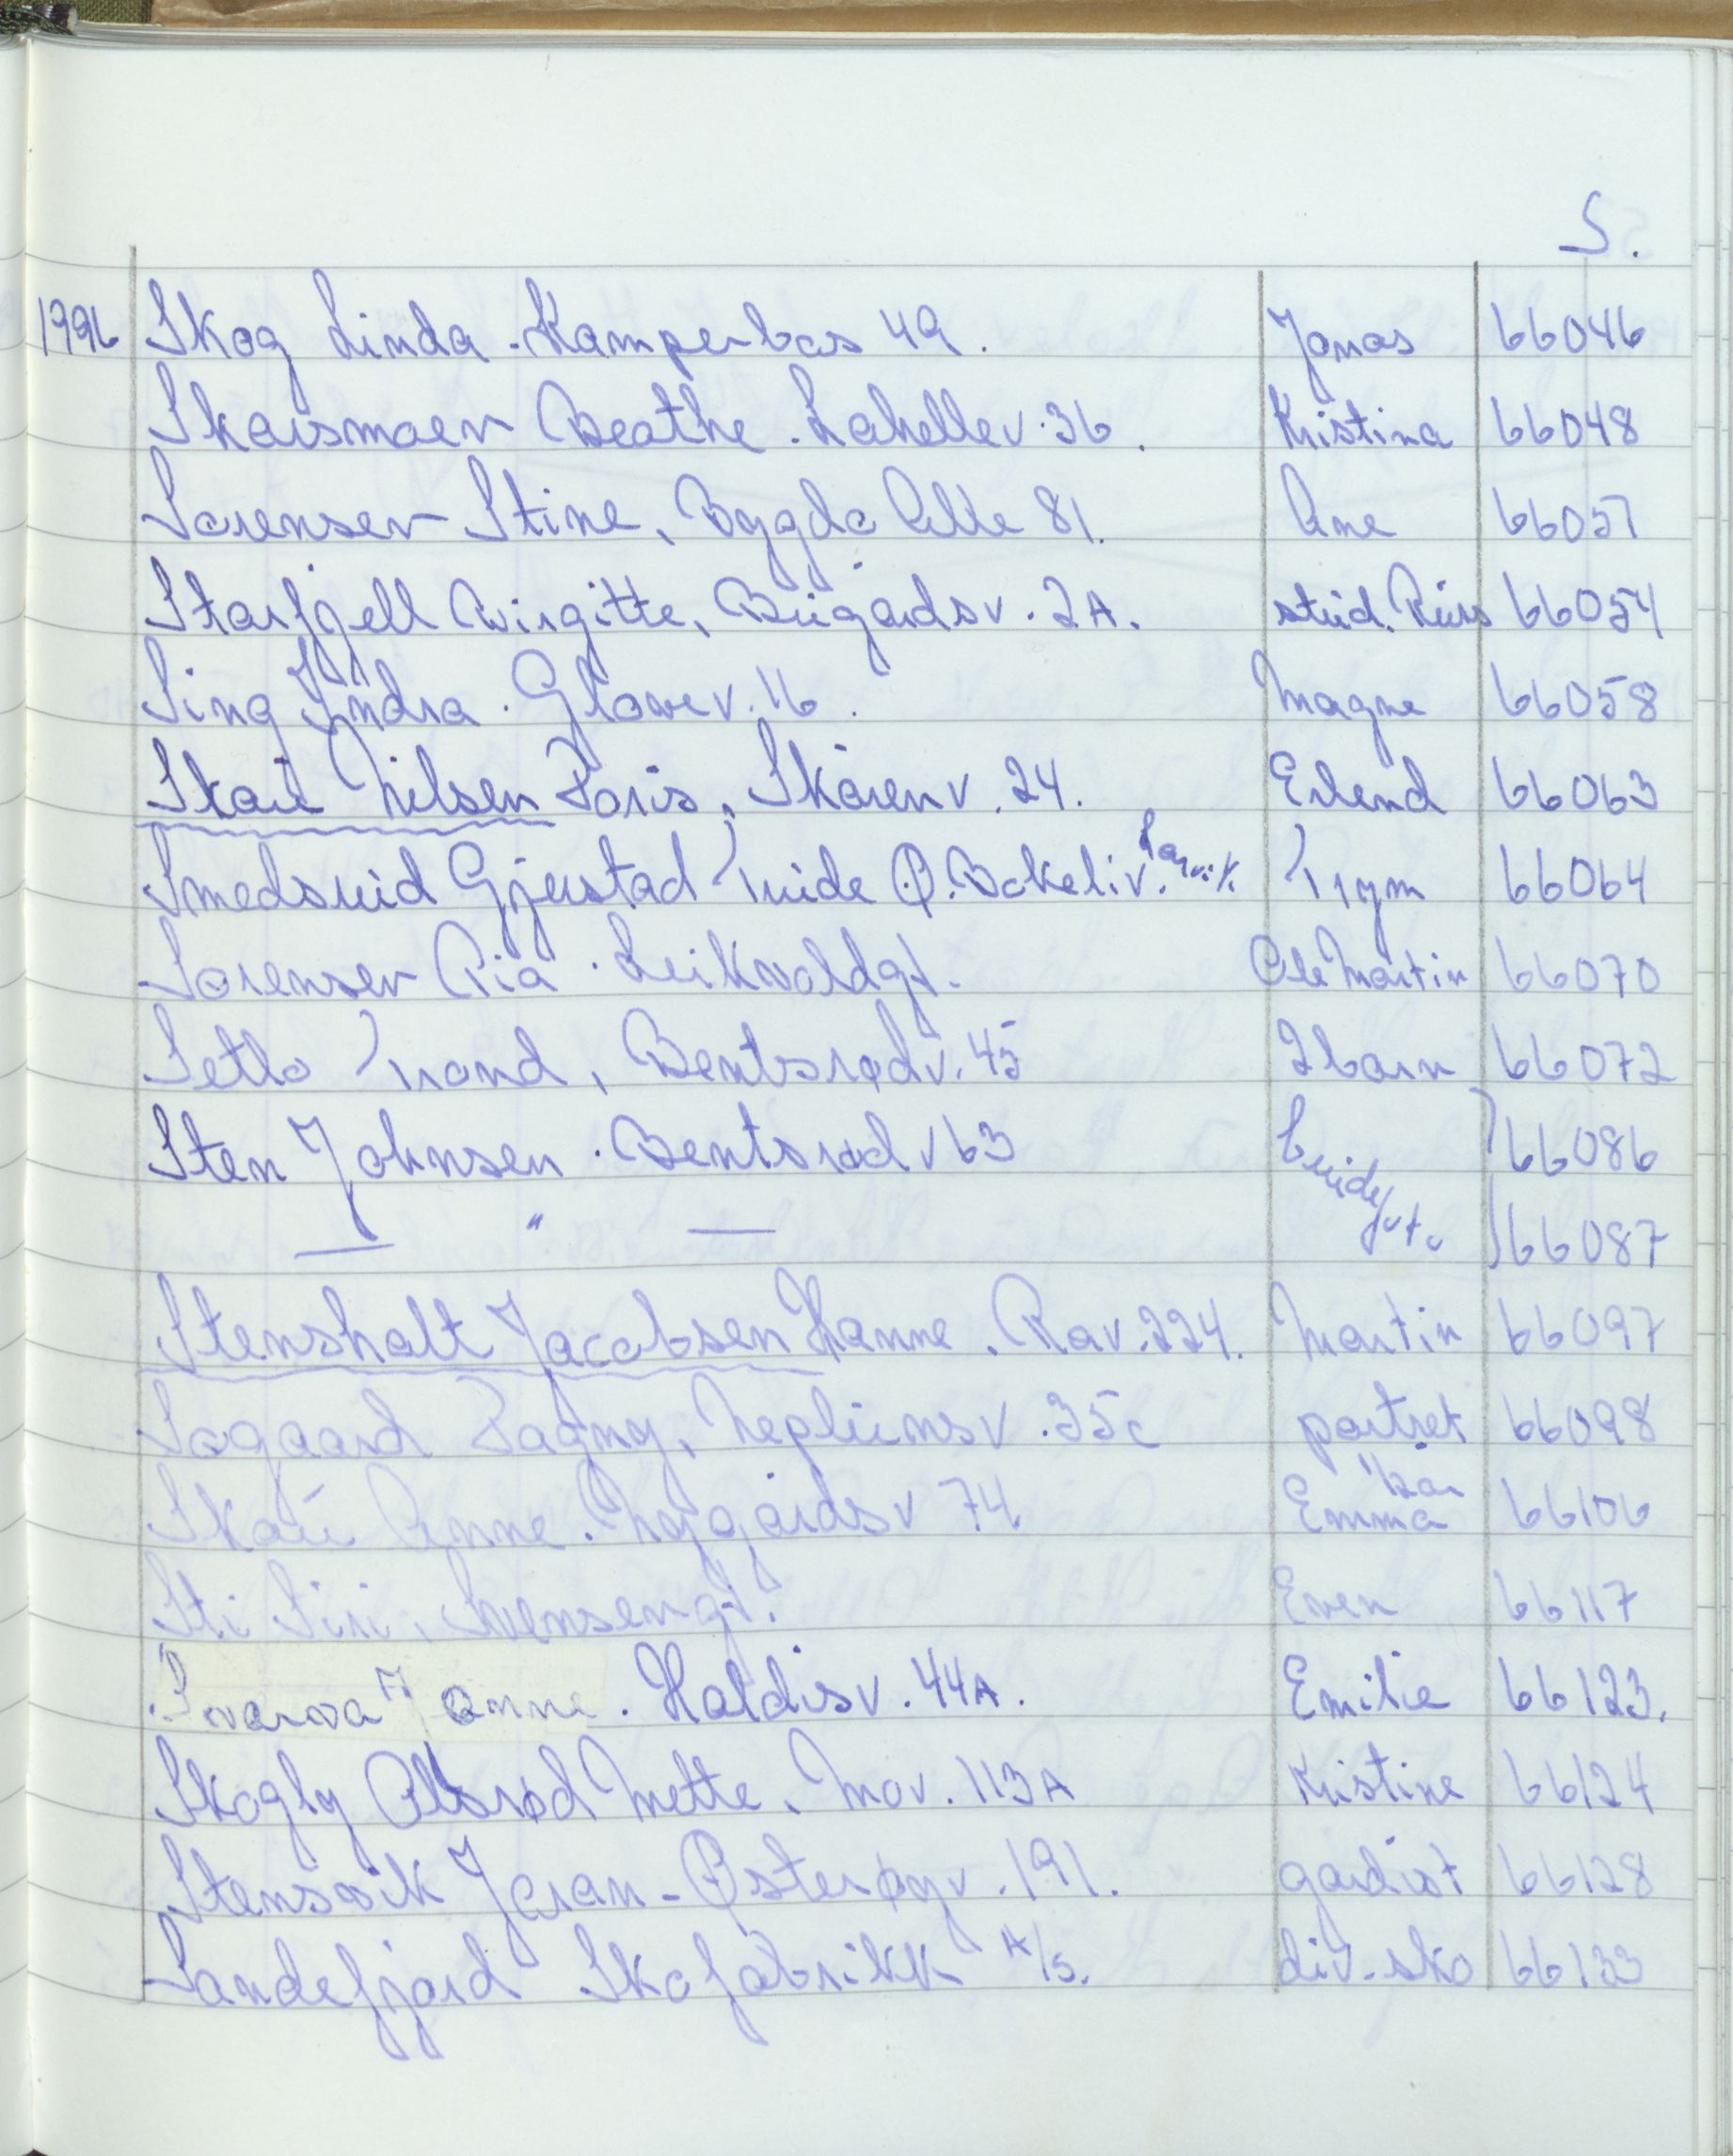 S.
1996 Skog Linda. Kamperbas 49. Jonas 66046
Skarsmoen Beathe. Lahellev. 36. Kristina 66048
Sørensen Stine, Bygdø Alle 81. Ane 66051
Starfjell Birgitte, Bugårdsv. 2A. stud. Russ 66054
Sing Indra. Glowev. 16. Magne 66058
Skau Nilsen Doris, Skårenv. 24. Erlend 66063
Smedsrud Gjerstad Tuide Ø. Bøkeliv. Larvik. Trym 66064
Sørensen Pia. Leikvoldgt. Ole Martin 66070
Setlo Trond, Bentsrødv. 45 2 barn 66072
Sten Johnsen. Bentsrødv 63 brude 66086
— " — foto 66087
Stensholt Jacobsen Hanne. Rav. 224. Martin 66097
Søgaard Dagny, Neptunsv. 35c portret 66098
Skau Anne. Nygårdsv 74 1/2 år Emma 66106
Sti Siri, Svensengt. Even 66117
Svarva Janne. Haldisv. 44A. Emilie 66123.
Skogly Olsrød Mette. Mov. 113A Kristine 66124
Stensvik Jøran - Østerøyv. 191. gardist 66128
Sandefjord Skofabrikk A/S. div. sko 66133